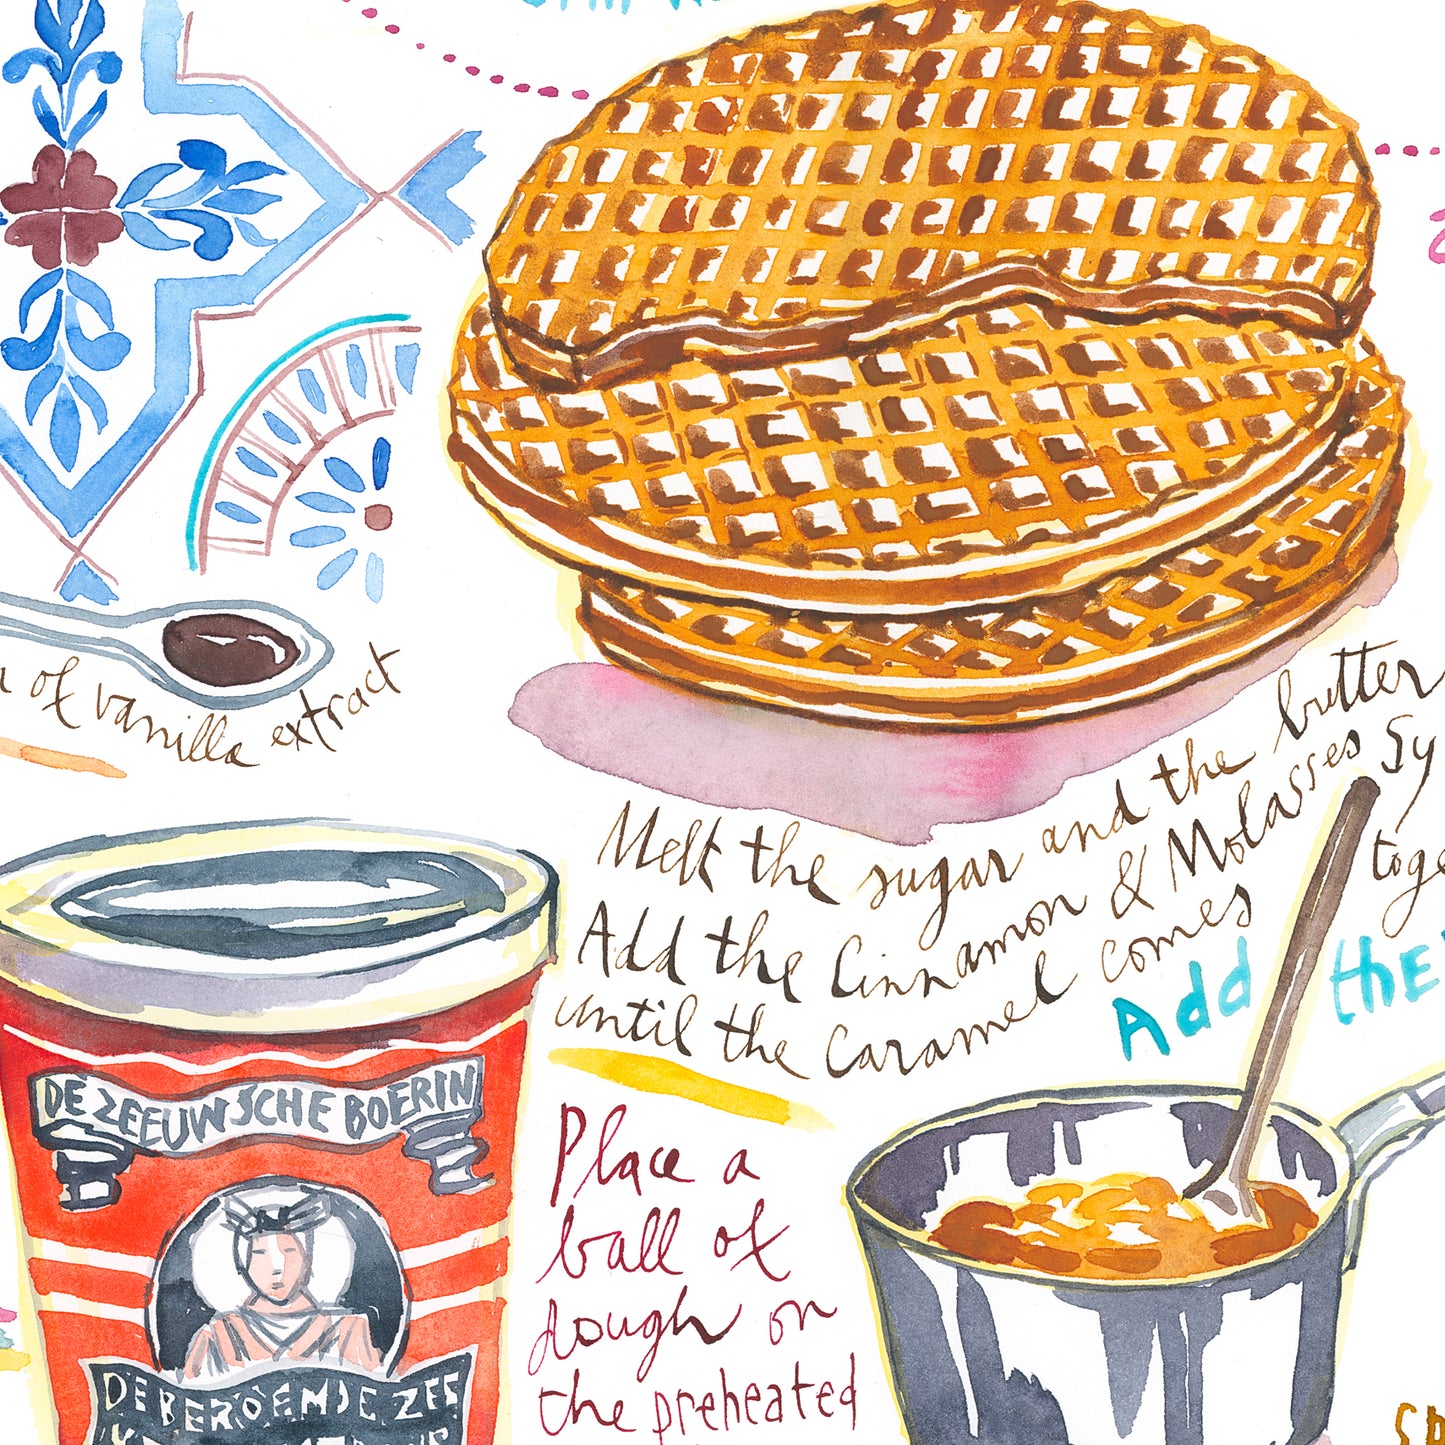 of vanilla extract
Melt the sugar and the butter
Add the Cinnamon & Molasses Sy
until the Caramel comes toge
Add thE
DE ZEEUWSCHE BOERIN
Place a
ball of
dough on
the preheated
DE BEROEMDE ZEE